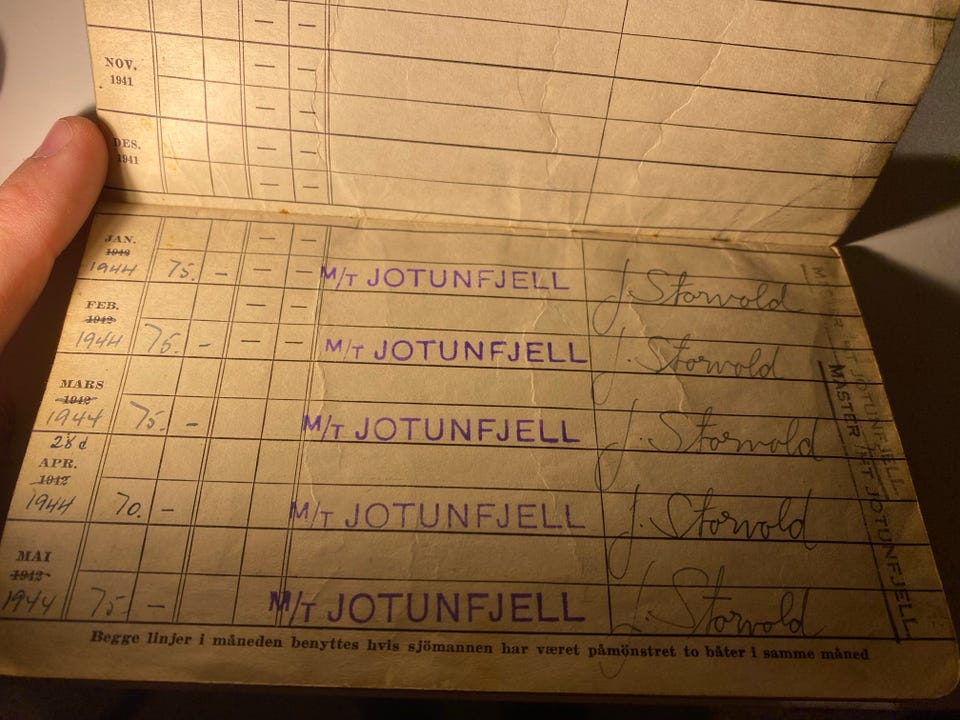 NOV.
1941
DES.
1941
JAN.
1942
1944 75. – M/T JOTUNFJELL J. Storvold
FEB.
1942
1944 75. – M/T JOTUNFJELL J. Storvold
MARS
1942
1944 75. – M/T JOTUNFJELL J. Storvold
28 d
APR.
1942
1944 70. – M/T JOTUNFJELL J. Storvold
MAI
1942
1944 75. – M/T JOTUNFJELL J. Storvold
MASTER M/T JOTUNFJELL.
M/T JOTUNFJELL.
Begge linjer i måneden benyttes hvis sjömannen har været påmönstret to båter i samme måned